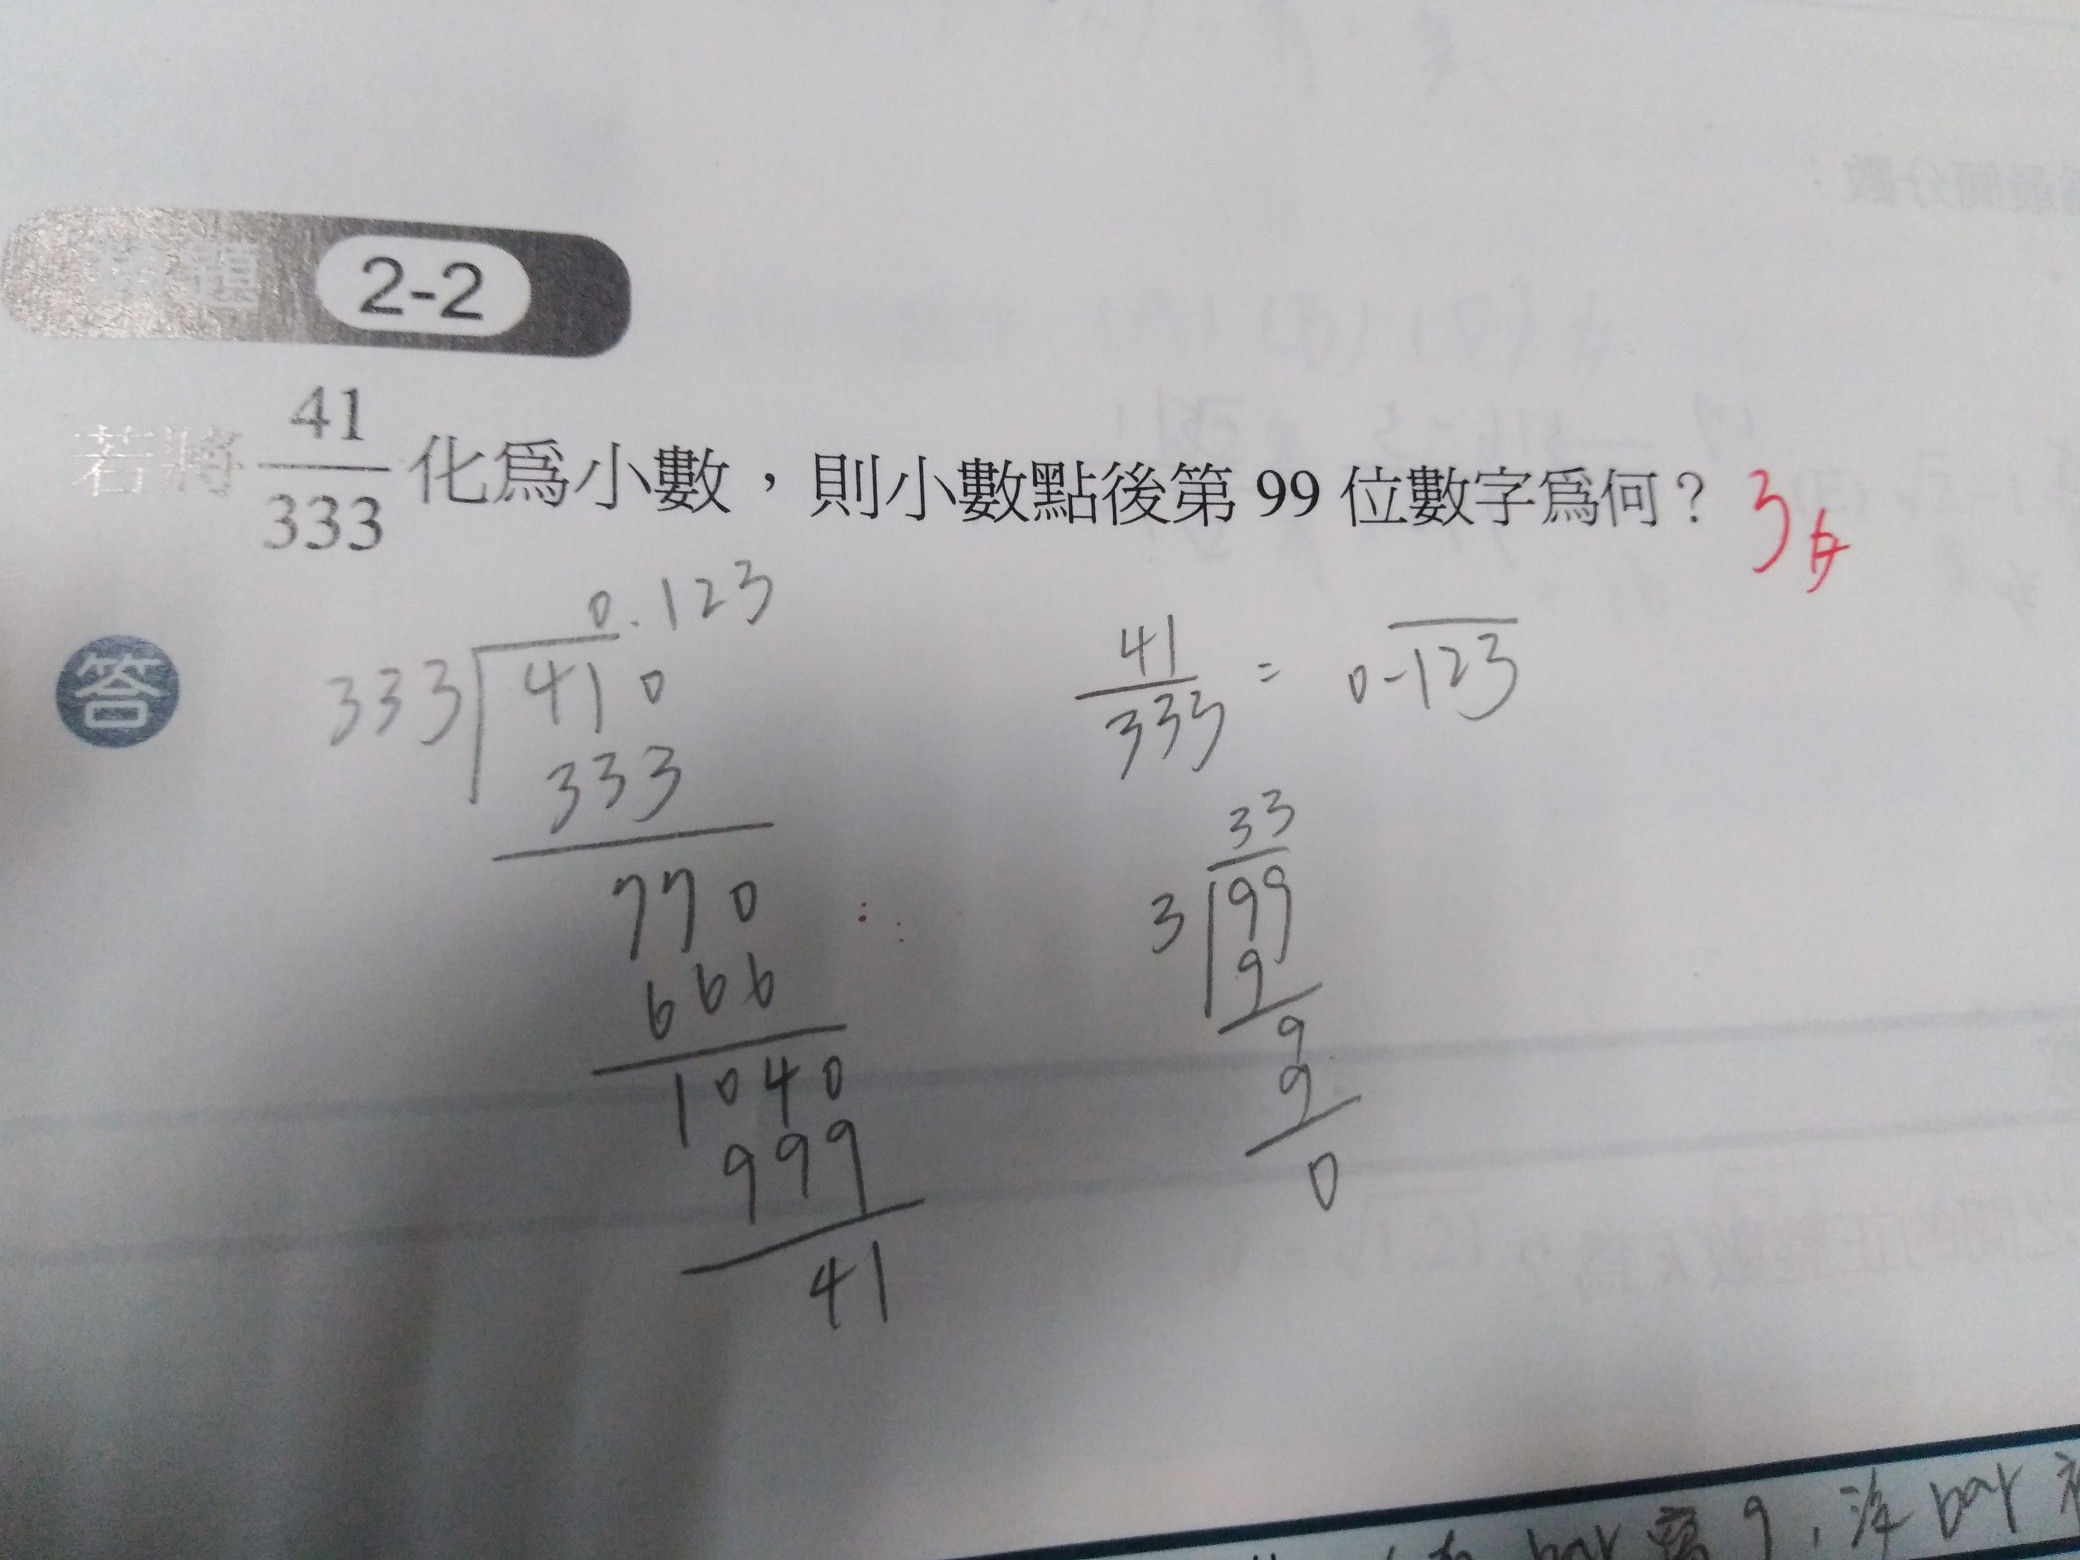 類題 2-2
若將 41/333 化為小數，則小數點後第 99 位數字為何？ 3
答
0.123
333 410
333
770
666
1040
999
41
41/333 = 0.123
33
3 99
9
9
9
0
bar 寫 9，沒 bar